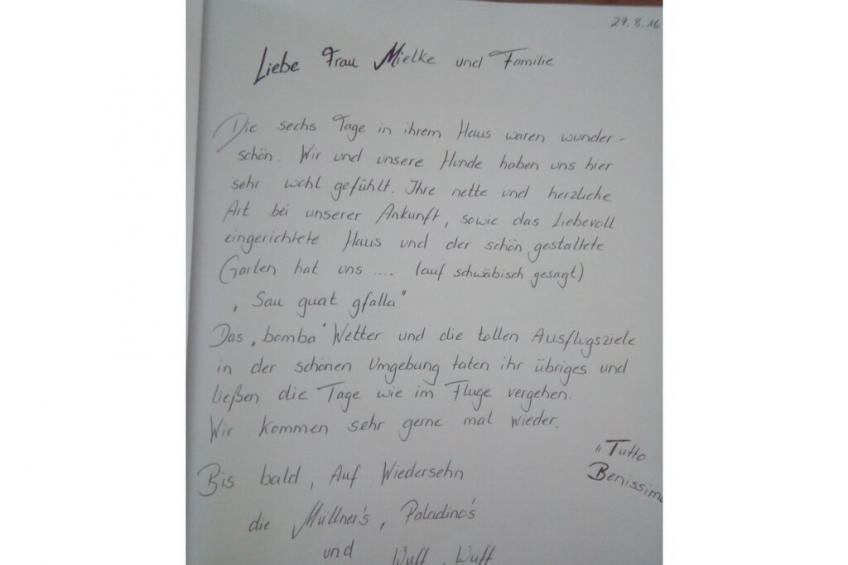 29.8.16
Liebe Frau Mielke und Familie
Die sechs Tage in ihrem Haus waren wunder-
schön. Wir und unsere Hunde haben uns hier
sehr wohl gefühlt. Ihre nette und herzliche
Art bei unserer Ankunft, sowie das Liebevoll
eingerichtete Haus und der schön gestaltete
Garten hat uns .... (auf schwäbisch gesagt)
„Sau guat gfalla"
Das „bomba" Wetter und die tollen Ausflugsziele
in der schönen Umgebung taten ihr übriges und
ließen die Tage wie im Fluge vergehen.
Wir kommen sehr gerne mal wieder.
"Tutto
Benissimo
Bis bald, Auf Wiedersehn
die Müllner's, Paladino's
und Wuff, Wuff